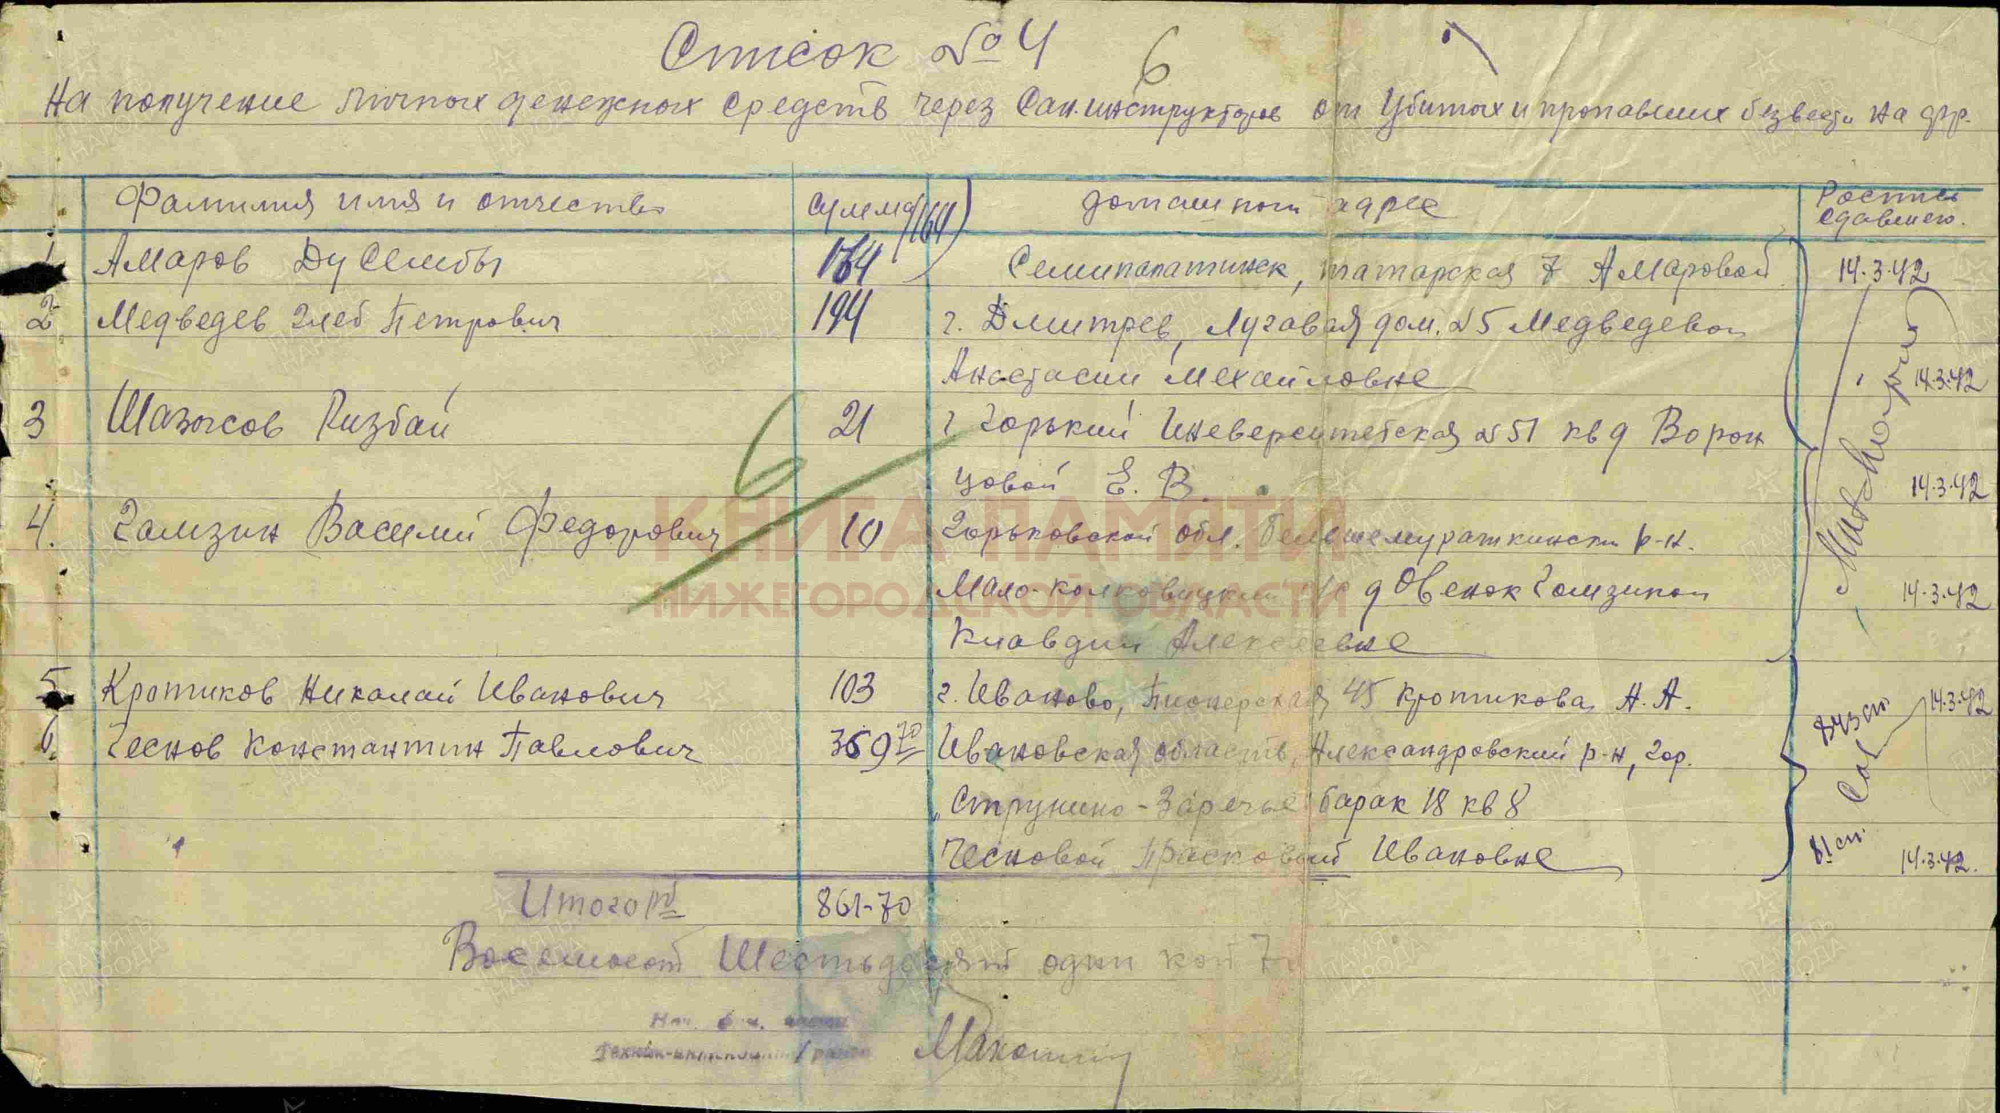 Список №4
6
На получение личных денежных средств через Сан.инструкторов от Убитых и пропавших безвести на фр.
Фамилия имя и отчество сумма домашный адрес Роспись сдавшего.
(164)
1 Амаров Дусембы 164 Семипалатинск, татарская 7 Амаровой 14.3.42
2 Медведев Глеб Петрович 194 г. Дмитрев, Луговая дом. №5 Медведевой
Анастасии Михайловне 14.3.42
3 Шазысов Ризбай 21 г Горький Иневерситетская №51 кв 9 Ворон
цовой Е. В. 14.3.42
4. Гамзин Василий Федорович 10 Горьковской обл. р-н.
Мало- Гамзиной 14.3.42
Клавдии Алексеевне
5 Кротиков Николай Иванович 103 г. Иваново, Пионерская 45 Кротикова Н. А. 14.3.42
6. Чеснов Константин Павлович 369 70 Ивановская область, Александровский р-н, гор.
Струнино-Заречье барак 18 кв 8
Чесновой Прасковий Ивановне 14.3.42.
Итого рб 861-70
Восемьсот Шестьдесят один коп 70
КНИГА ПАМЯТИ
НИЖЕГОРОДСКОЙ ОБЛАСТИ